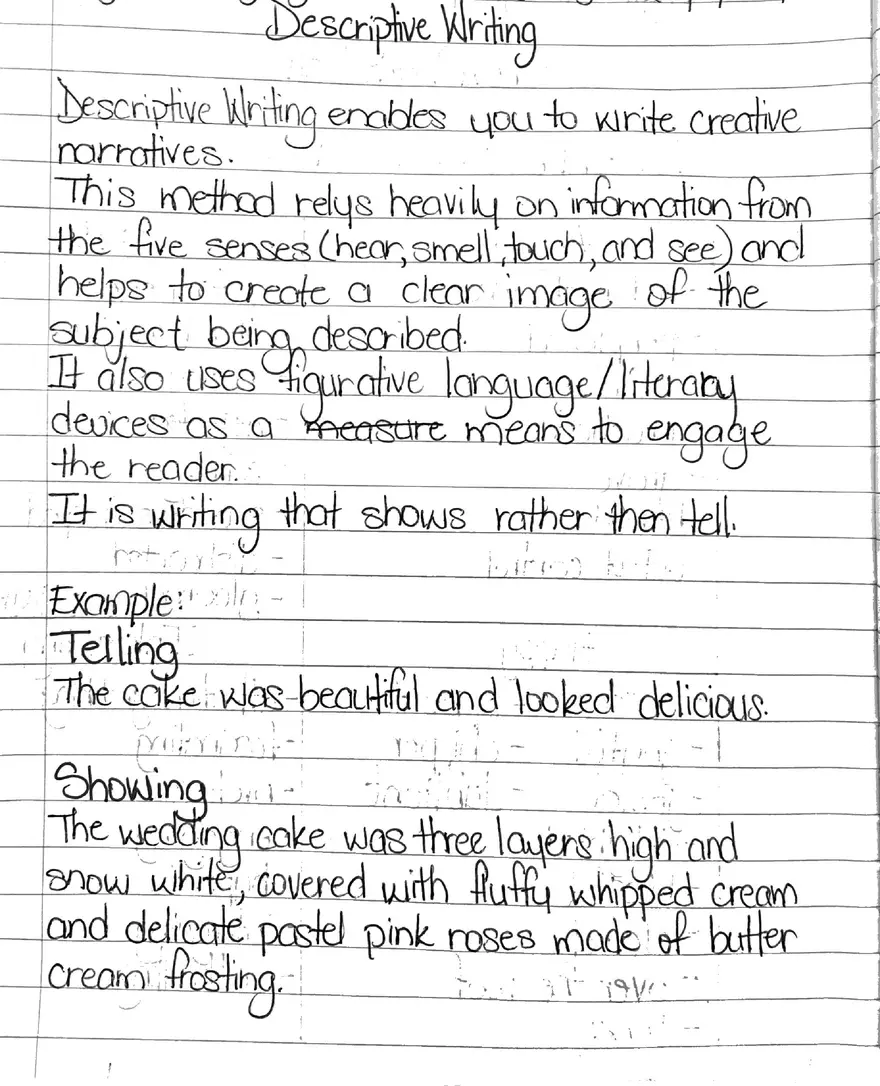 Descriptive Writing
Descriptive Writing enables you to write creative
narratives.
This method relys heavily on information from
the five senses (hear, smell, touch, and see) and
helps to create a clear image of the
subject being described.
It also uses figurative language/literary
devices as a measure means to engage
the reader.
It is writing that shows rather then tell.
Example:
Telling
The cake was beautiful and looked delicious.
Showing
The wedding cake was three layers high and
snow white, covered with fluffy whipped cream
and delicate pastel pink roses made of butter
cream frosting.